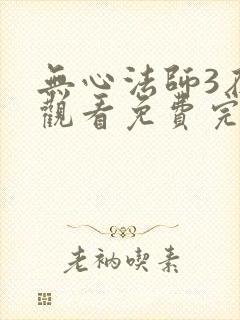 無心法師3
觀看免費完
老衲喫素